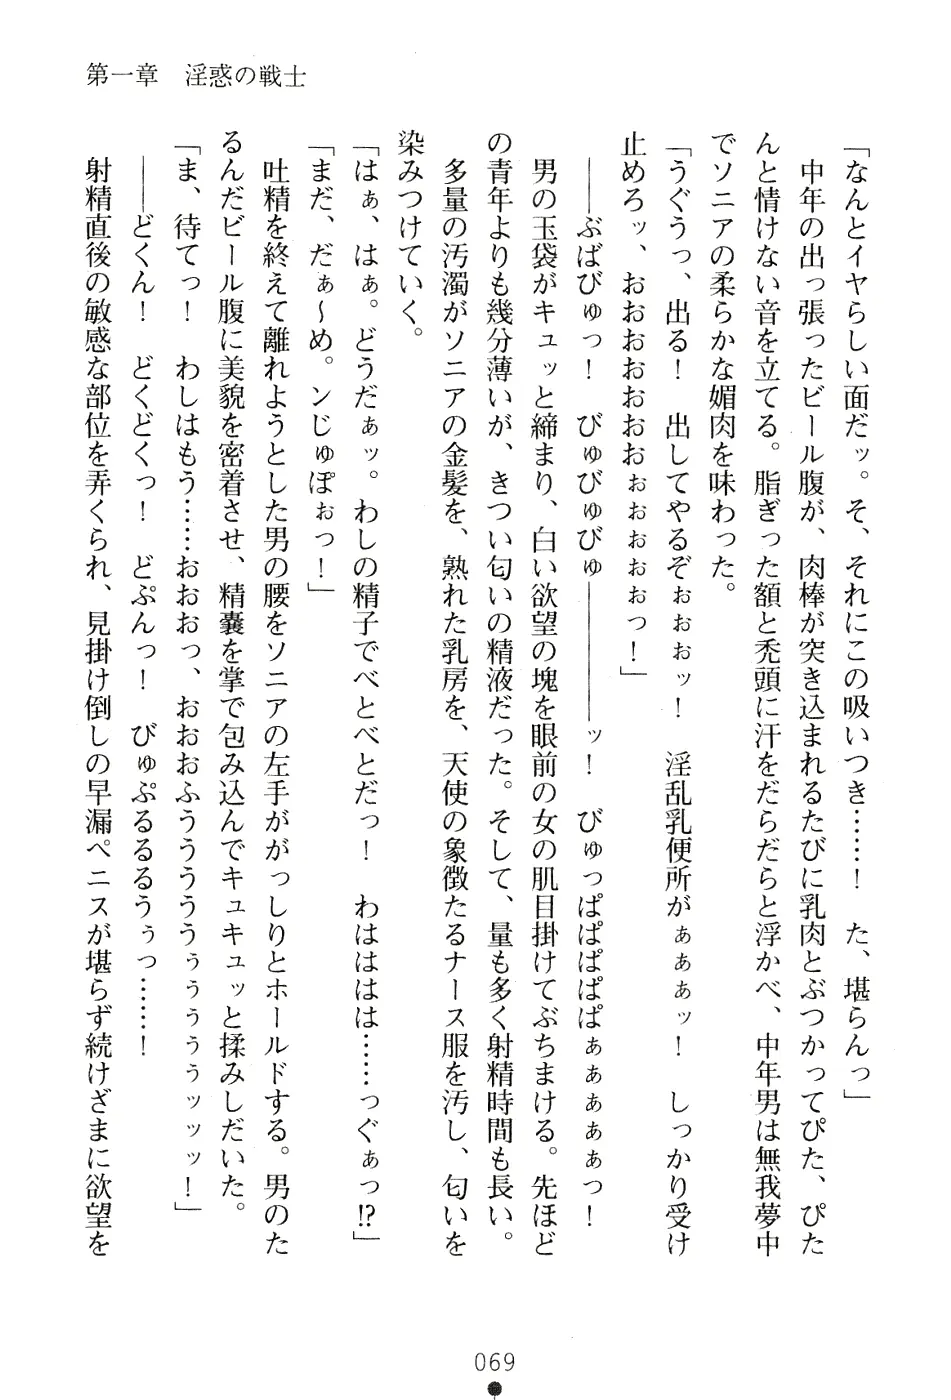 第一章　淫惑の戦士
「なんとイヤらしい面だッ。そ、それにこの吸いつき……！　た、堪らんっ」
　中年の出っ張ったビール腹が、肉棒が突き込まれるたびに乳肉とぶつかってぴた、ぴた
んと情けない音を立てる。脂ぎった額と禿頭に汗をだらだらと浮かべ、中年男は無我夢中
でソニアの柔らかな媚肉を味わった。
「うぐうっ、出る！　出してやるぞぉぉぉッ！　淫乱乳便所がぁぁぁッ！　しっかり受け
止めろッ、おおおおおおぉぉぉぉぉっ！」
　――ぶばびゅっ！　びゅびゅびゅ――――――ッ！　びゅっぱぱぱぱぁぁぁぁぁっ！
　男の玉袋がキュッと締まり、白い欲望の塊を眼前の女の肌目掛けてぶちまける。先ほど
の青年よりも幾分薄いが、きつい匂いの精液だった。そして、量も多く射精時間も長い。
　多量の汚濁がソニアの金髪を、熟れた乳房を、天使の象徴たるナース服を汚し、匂いを
染みつけていく。
「はぁ、はぁ。どうだぁッ。わしの精子でべとべとだっ！　わはははは……っぐぁっ!?」
「まだ、だぁ～め。ンじゅぽぉっ！」
　吐精を終えて離れようとした男の腰をソニアの左手ががっしりとホールドする。男のた
るんだビール腹に美貌を密着させ、精嚢を掌で包み込んでキュキュッと揉みしだいた。
「ま、待てっ！　わしはもう……おおおっ、おおおふうううううぅぅぅぅぅッッッ！」
　――どくん！　どくどくっ！　どぷんっ！　びゅぷるるるうぅっ……！
　射精直後の敏感な部位を弄くられ、見掛け倒しの早漏ペニスが堪らず続けざまに欲望を
069